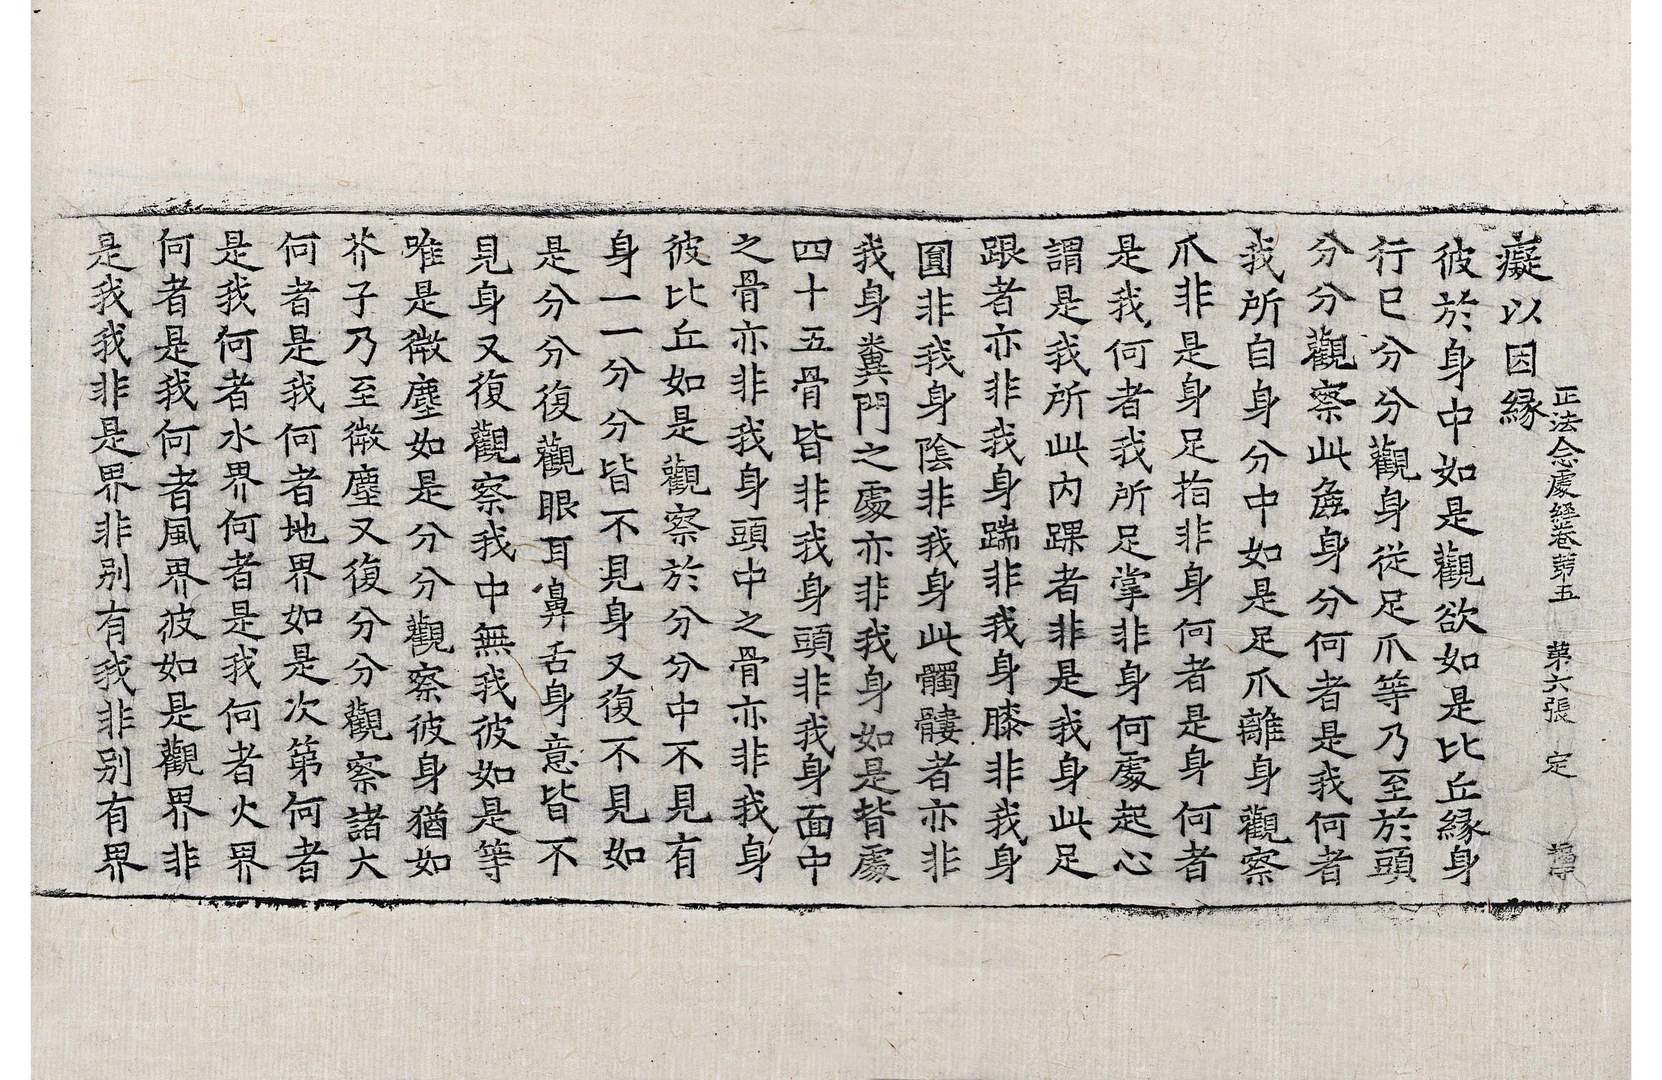 正法念處經卷第五 第六張 定
癡以因緣
彼於身中如是觀欲如是比丘緣身
行已分分觀身從足爪等乃至於頭
分分觀察此麁身分何者是我何者
我所自身分中如是足爪離身觀察
爪非是身足指非身何者是身何者
是我何者我所足掌非身何處起心
謂是我所此內踝者非是我身此足
跟者亦非我身踹非我身膝非我身
圓非我身陰非我身此髑髏者亦非
我身糞門之處亦非我身如是背處
四十五骨皆非我身頭非我身面中
之骨亦非我身頭中之骨亦非我身
彼比丘如是觀察於分分中不見有
身一一分分皆不見身又復不見如
是分分分復觀眼耳鼻舌身意皆不
見身又復觀察我中無我彼如是等
唯是微塵如是分分觀察彼身猶如
芥子乃至微塵又復分分觀察諸大
何者是我何者地界如是次第何者
是我何者水界何者是我何者火界
何者是我何者風界彼如是觀界非
是我我非是界非別有我非別有界